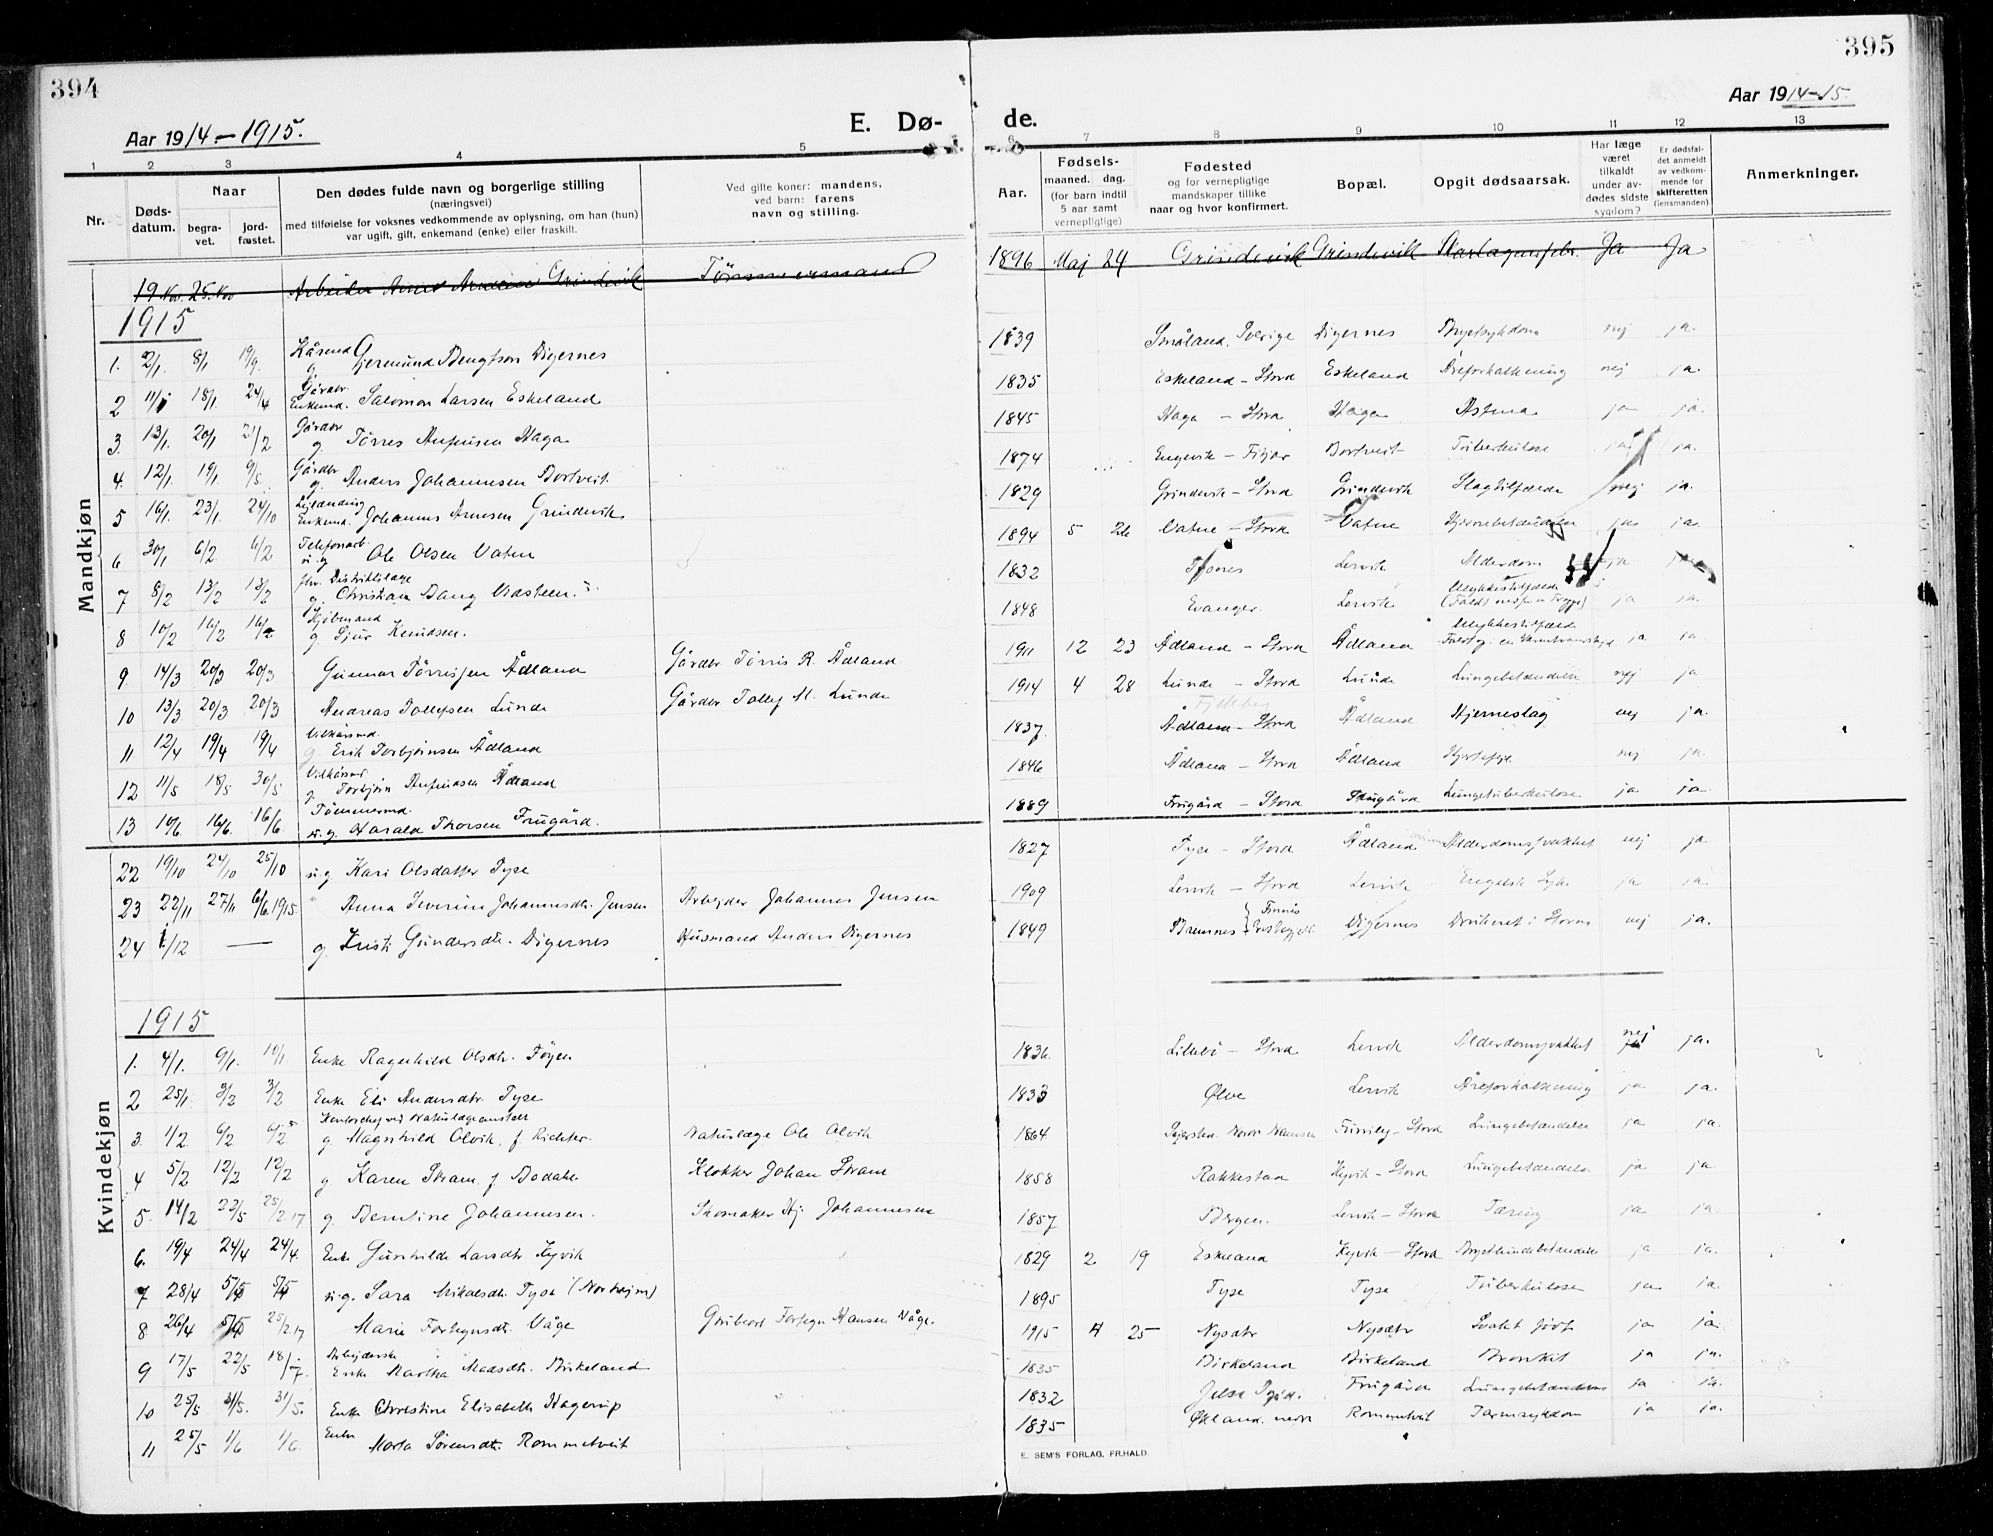 394
395
Aar 1914-1915.
E. Dø-
de.
Aar 1914-15.
1 2 3 4 5 6 7 8 9 10 11 12 13
Nr.
Døds-
datum.
Naar
begra-
vet.
jord-
fæstet.
Den dødes fulde navn og borgerlige stilling
(næringsvei)
med tilføielse for voksnes vedkommende av oplysning, om han (hun)
var ugift, gift, enkemand (enke) eller fraskilt.
Ved gifte koner: mandens,
ved barn: farens
navn og stilling.
Aar.
Fødsels-
maaned. dag.
(for barn indtil
5 aar samt
vernepligtige)
Fødested
og for vernepligtige
mandskaper tillike
naar og hvor konfirmert.
Bopæl.
Opgit dødsaarsak.
Har læge
været
tilkaldt
under av-
dødes sidste
sygdom?
Er dødsfal-
det anmeldt
av vedkom-
mende for
skifteretten
(lensmanden)
Anmerkninger.
Mandkjøn
19 Nov. 25 Nov Arbeider Grindevik Tömmermand 1896 Maj 24 Grindevik Grindevik Ja Ja
1915
1. 2/1. 8/1 19/9. g. Gjermund Bengtson Digernes 1839 Småland, Sverige Digernes Brystsykdom nej ja.
2 11/1 18/1. 24/4 Gårdbr. Enkemd. Salomon Larsen Eskeland 1835 Eskeland - Stord Eskeland Åreforkalkning nej ja.
3. 13/1. 20/1 21/2 Gårdbr g. Törres Anfinsen Haga 1845 Haga - Stord Haga Astma ja ja.
4. 12/1. 19/1 9/5. Gårdbr g. Anders Johannesen Bortveit 1874 Engevik - Fitjar Bortveit Tuberkulose ja ja.
5 16/1. 23/1. 24/10 Enkemd. Johannes Arnesen Grindevik 1829 Grindevik - Stord Grindevik Slagtilfælde nej ja.
6 30/1 6/2 6/2 Telefonarb. u.g Ole Olsen Vatne 1894 5 26 Vatne - Stord Vatne Hjernebetændelse ja ja.
7 8/2 13/2 13/2 fhv. Distriktslæge g. Christian Bang 1832 Lervik Alderdom ja
8 10/2 16/2 16/2 g. Sjur Knudsen. 1848 Evanger. Lervik Ulykkestilfælde ja ja.
9. 14/3 20/3 20/3 Gunnar Tørrisen Ådland Gårdbr Tørris R. Ådland 1911 12 23 Ådland - Stord Ådland Ulykkestilfælde ja ja.
10 13/3 20/3 20/3 Andreas Tollefsen Lunde Gårdbr Tollef M. Lunde 1914 4 28 Lunde - Stord Lunde Lungebetændelse nej ja
11 12/4 19/4 19/4 g. Erik Torbjørnsen Ådland 1837 Fjelberg Ådland - Stord Ådland Hjerneslag nej ja.
12 11/5 18/5 30/5 Vilkårsmd g. Torbjørn Anfindsen Ådland 1846 Ådland - Stord Ådland Hjertefejl nej ja.
13 10/6. 16/6. 16/6. Tømmermd. u.g. Harald Thorsen Frugård. 1889 Frugård - Stord Frugård Lungetuberkulose ja ja.
Kvindekjøn
22 19/10 24/10 25/10 u.g. Kari Olsdatter Tyse 1827 Tyse - Stord Ådland Alderdomssvakhet nej ja
23 22/11 27/11 6/6.1915 Anna Severine Johannesdtr. Jensen Arbejder Johannes Jensen 1909 Lervik - Stord Lervik Engelsk Syke ja ja.
24 1/12 — g. Kristi Gundersdtr. Digernes Husmand Anders Digernes 1849 Bremnes Digernes Druknet i Stord nej ja.
1915
1. 4/1. 9/1. 10/1 Enke Ragnhild Olsdtr. Føyen 1836. Lillebö - Stord Lervik Alderdomssvakhet nej ja.
2 25/1. 3/2 3/2 Enke Eli Andersdtr Tyse 1833 Ølve Lervik Åreforkalkning ja ja.
3. 1/2 6/2 6/2 g. Magnhild Olvik, f. Richter. Naturlæge Ole Olvik 1864 Furuly - Stord Lungebetændelse ja ja.
4 5/2 12/2 12/2 g. Karen Stram, f. Bodahl Klokker Johan Stram 1858 Rakkestad Kyvik - Stord Lungebetændelse ja ja.
5. 14/2 22/5 25/2 17 g. Berntine Johannesen. Skomaker Hj. Johannesen 1857 Bergen. Lervik - Stord Tæring ja ja.
6. 19/4 24/4 24/4. Enke Gunhilde Larsdtr Kyvik 1829 2 19 Eskeland Kyvik - Stord Brysthindebetændelse ja ja.
7 28/4 5/5 5/5 u.g. Sara Mikalsdtr. Tyse (Norheim) 1895 Tyse Tyse Tuberkulose ja ja.
8. 26/4 5/5 25/2 17 Marie Forthunsdtr. Våge Hansen Våge. 1915 4 25 Nysæter Nysæter Svakt født ja ja
9 17/5 22/5 18/7. Arbejderske Enke Martha Madsdtr. Birkeland 1835 Birkeland Birkeland Bronkit ja ja.
10 25/5 31/5. 31/5. Enke Christine Elisabeth Hagerup 1832 Jelse Frugård Lungebetændelse ja ja.
11 25/5 1/6 1/6. Enke Marta Sørensdtr. Rommetveit 1835 Økland nedre Rommetveit Tarmsykdom ja ja.
E. SEM'S FORLAG, FR.HALD.